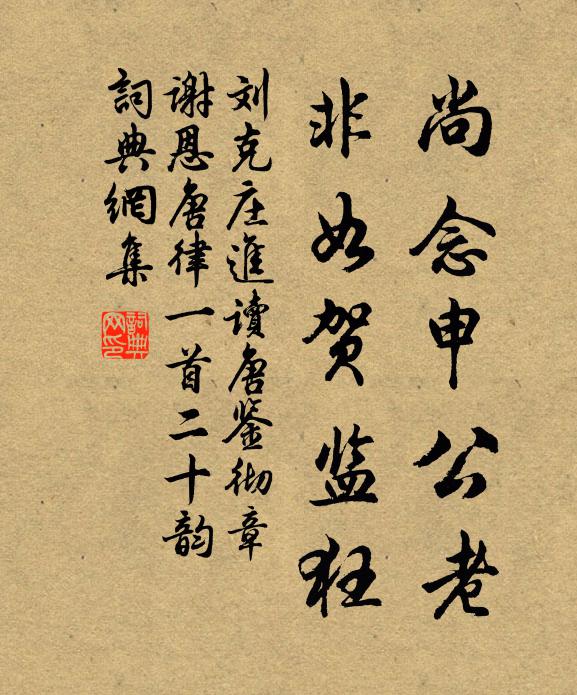 尚念申公老
非如贺监狂
刘克庄進讀唐鉴彻章
谢恩唐律一首二十韵
詞典網集
詞典
网印